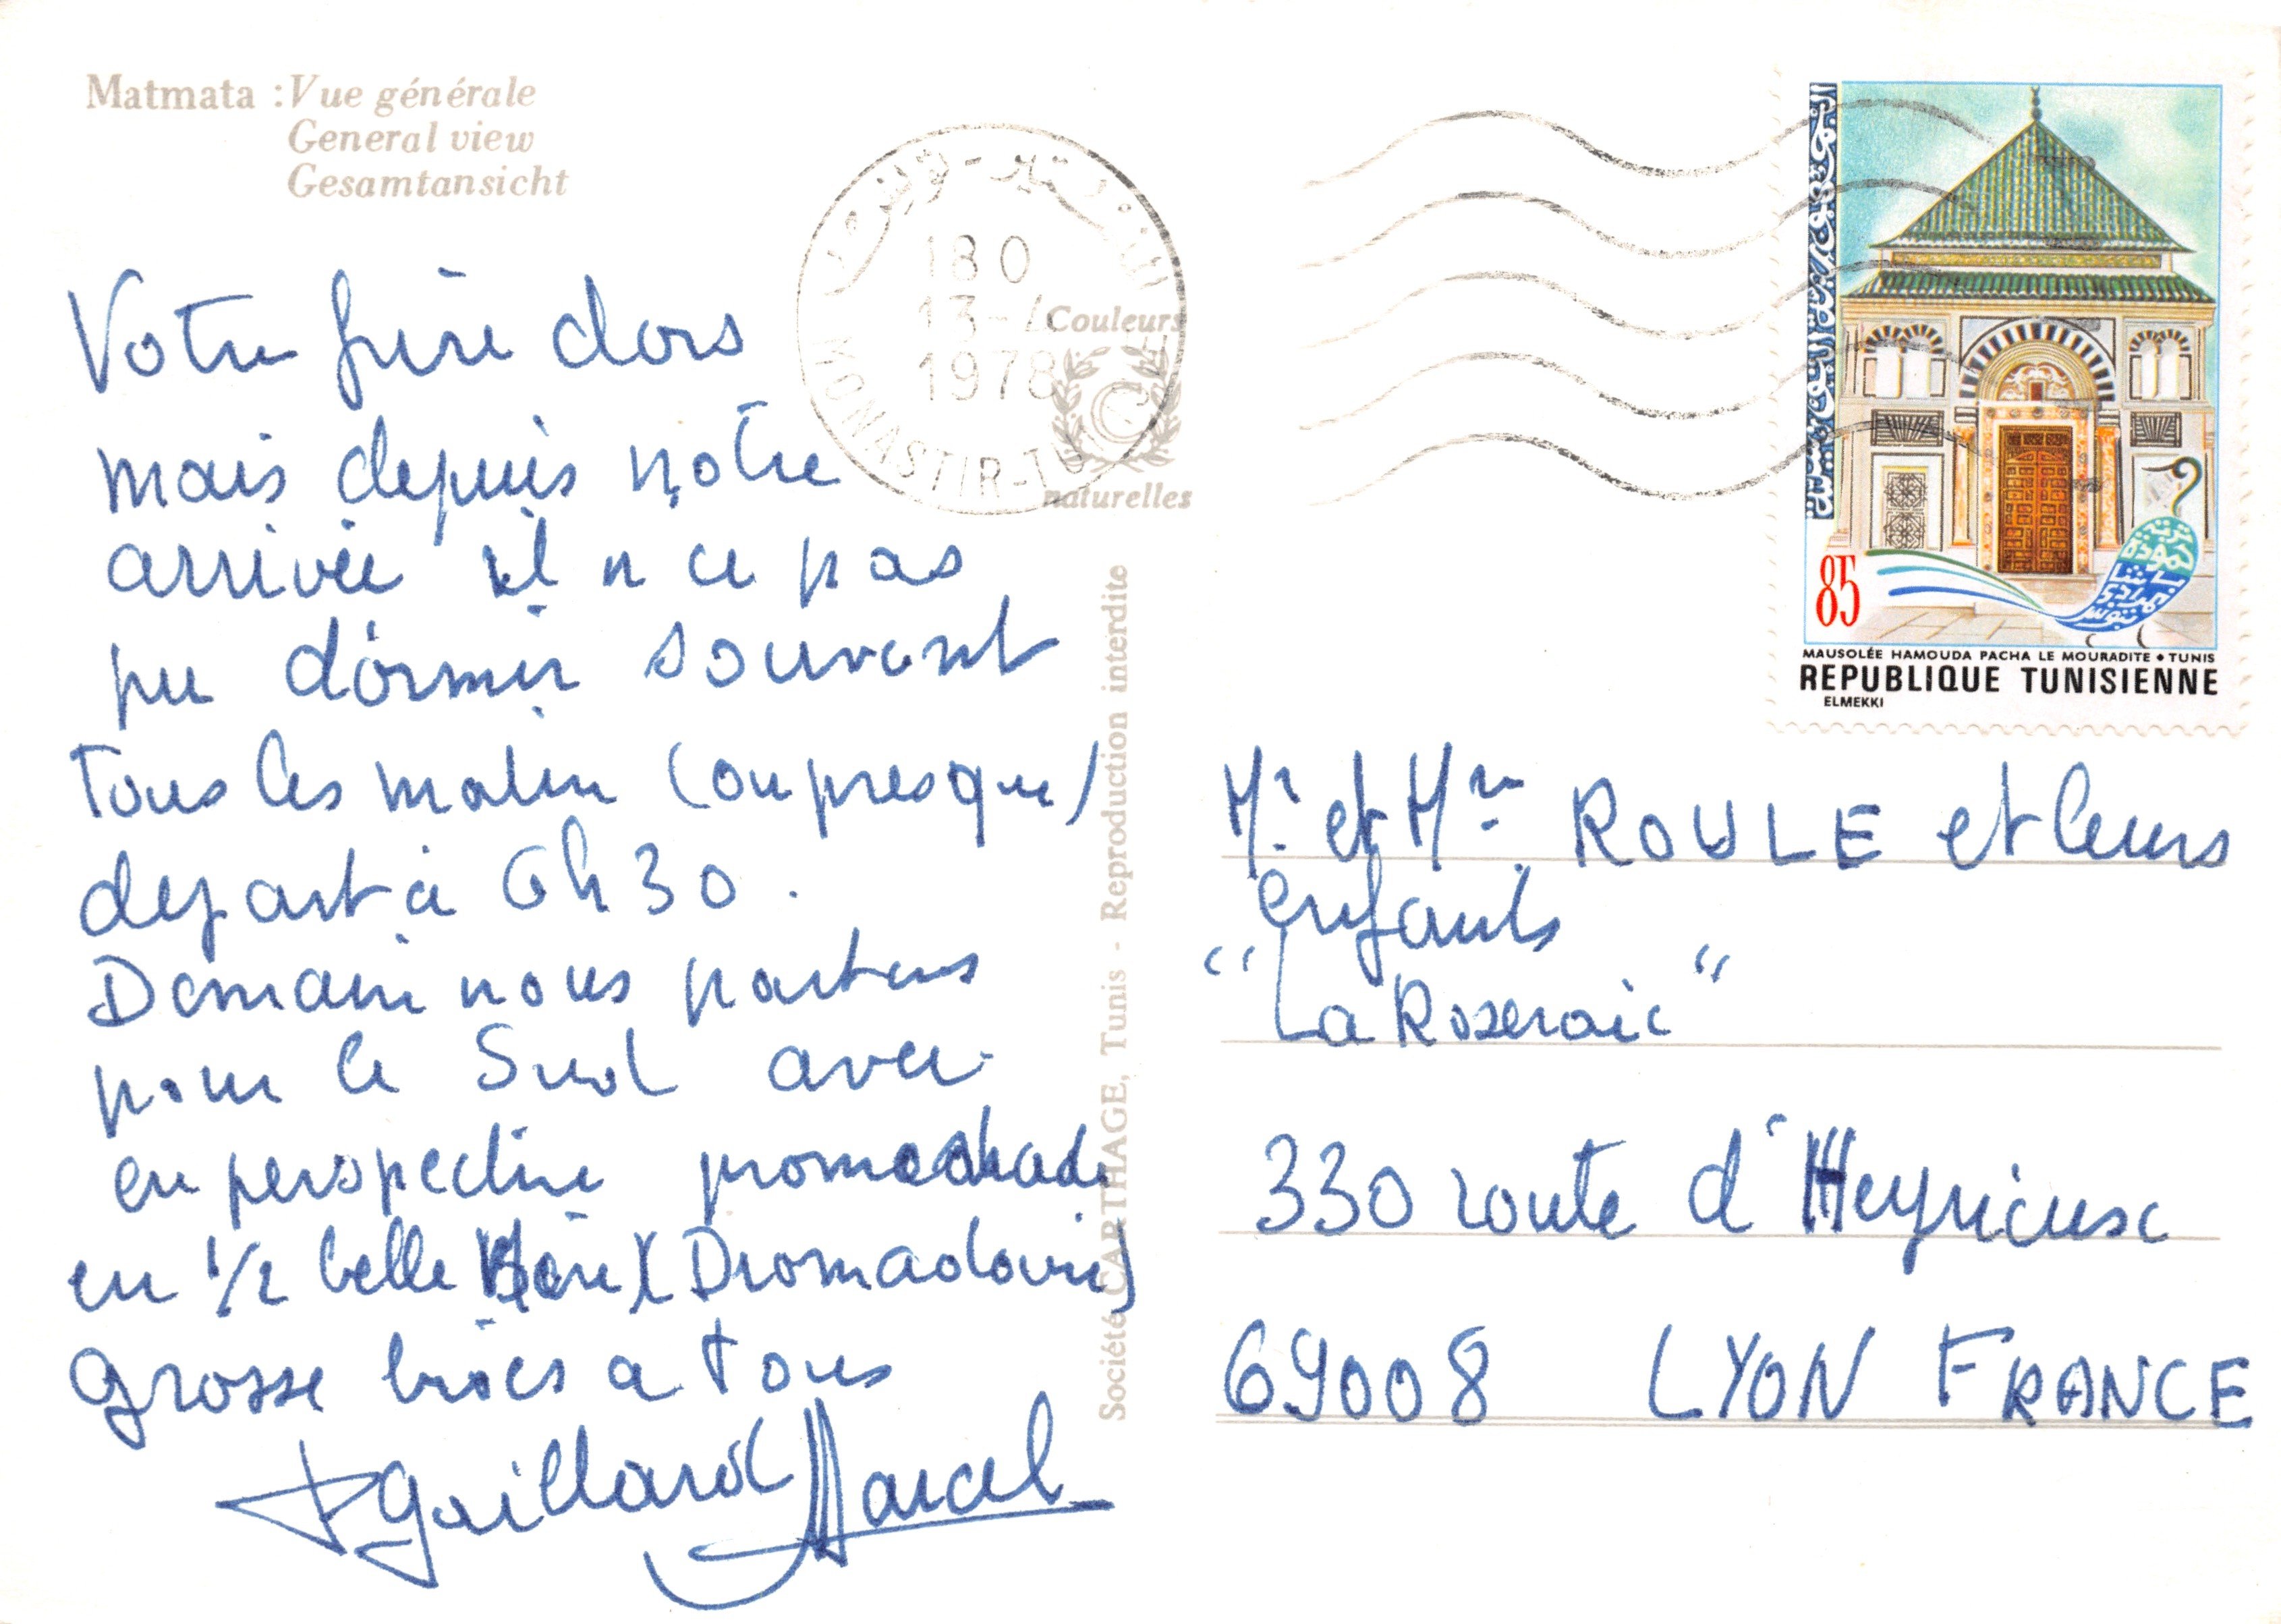 Matmata : Vue générale
General view
Gesamtansicht
Votre frère dors
mais depuis notre
arrivée il n ce pas
pu dormir souvent
Tous les matin (ou presque)
depart à 6h30.
Demain nous partons
pour le Sud avec
en perspective promenade
en 1/2 belle Mère (Dromadaire)
grosse bises a tous
Gaillard Marcel
180
13-
1978
MONASTIR-TU
Couleurs
naturelles
Société CARTHAGE, Tunis - Reproduction interdite
85
MAUSOLÉE HAMOUDA PACHA LE MOURADITE • TUNIS
REPUBLIQUE TUNISIENNE
ELMEKKI
Mr. et Mme. ROULE et leurs
enfants
"La Roseraie"
330 route d'Heyrieuse
69008 LYON FRANCE